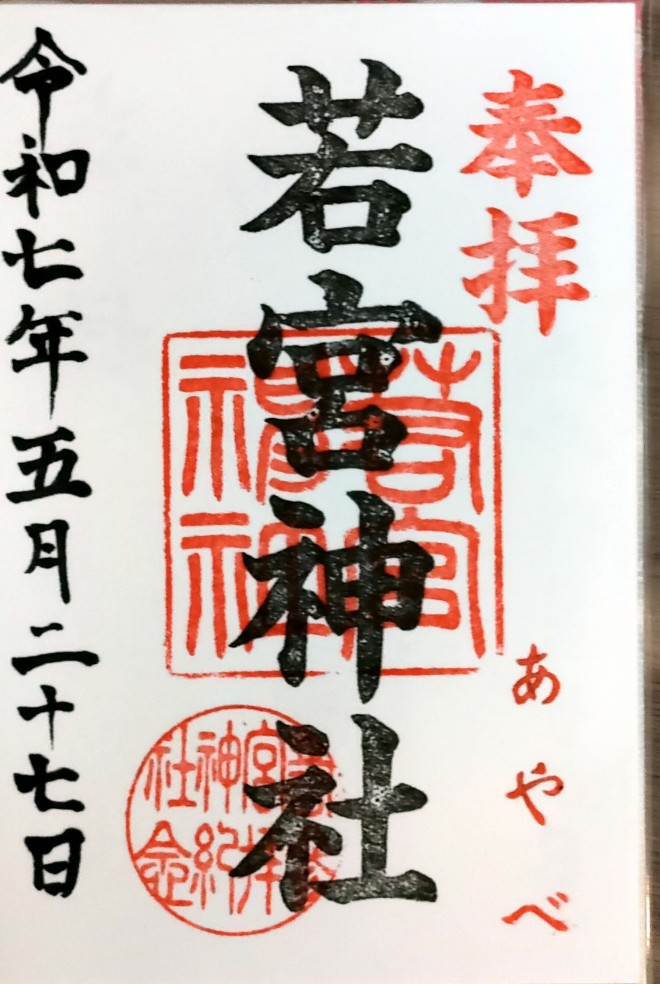 奉拝
あやべ
若宮神社
若宮神社
若宮神社参拝紀念
令和七年五月二十七日